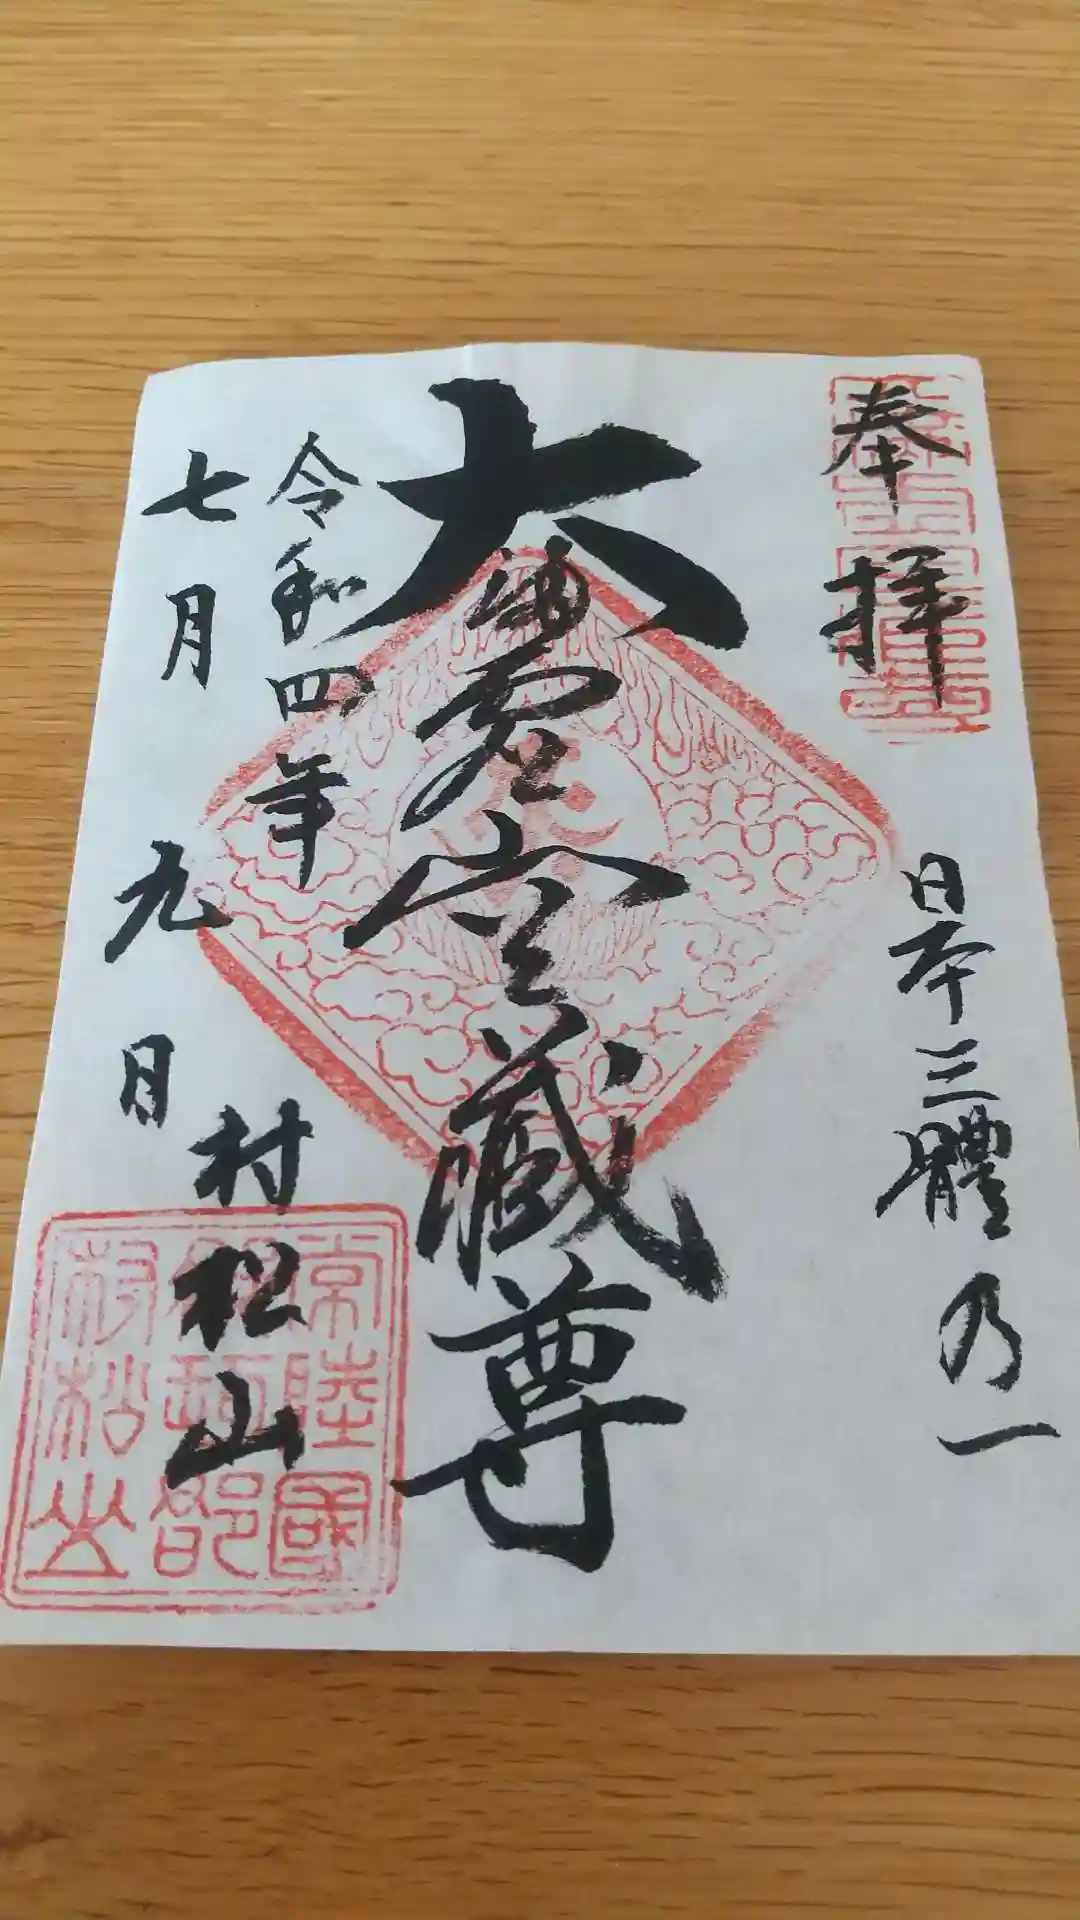 奉拝
日本三體乃一
大満虚空蔵尊
令和四年
七月九日
村松山
常陸國
村松山